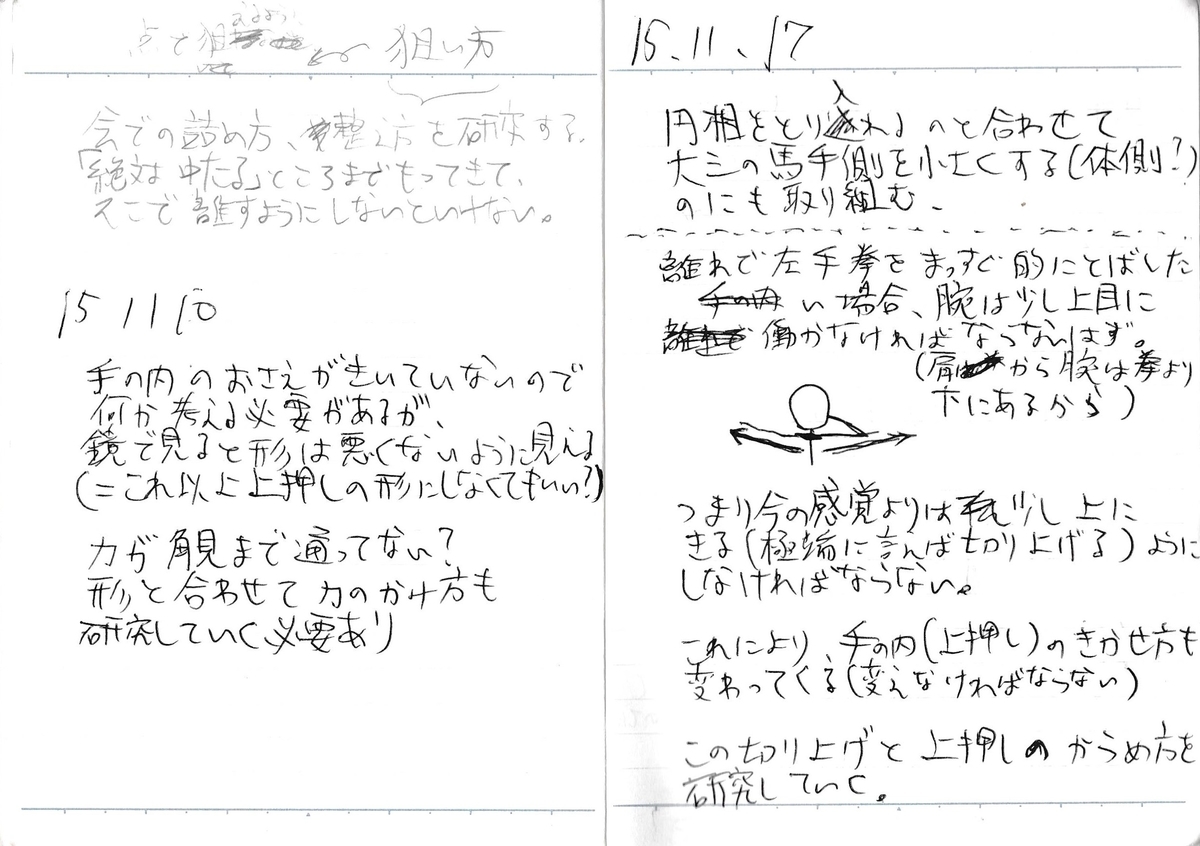 点で狙 狙い方
会での詰め方、整え方を研究する。
「絶対は中たる」ところまでもってきて、
そこで離すようにしないといけない。
15 11 10
手の内のおさえが生いていないので
何か考える必要があるが、
鏡で見ると形は悪くないように見える
(=これ以上上押しの形にしなくてもいい?)
力が角見まで通ってない?
形と合わせて力のかけ方も
研究していく必要あり
15.11.17
円相をとり入れるのと合わせて
大三の馬手側を小さくする(体側?)
のにも取り組む、
離れで左手拳をまっすぐ的にとばした
い場合、腕は少し上目に
働かなければならないはず。
(肩から腕は拳より
下にあるから)
つまり今の感覚よりは少し上に
きる(極端に言えば切り上げる)ように
しなければならない。
これにより、手の内(上押し)のきかせ方も
変わってくる(変えなければならない)
この切り上げと上押しのからめ方を
研究していく。